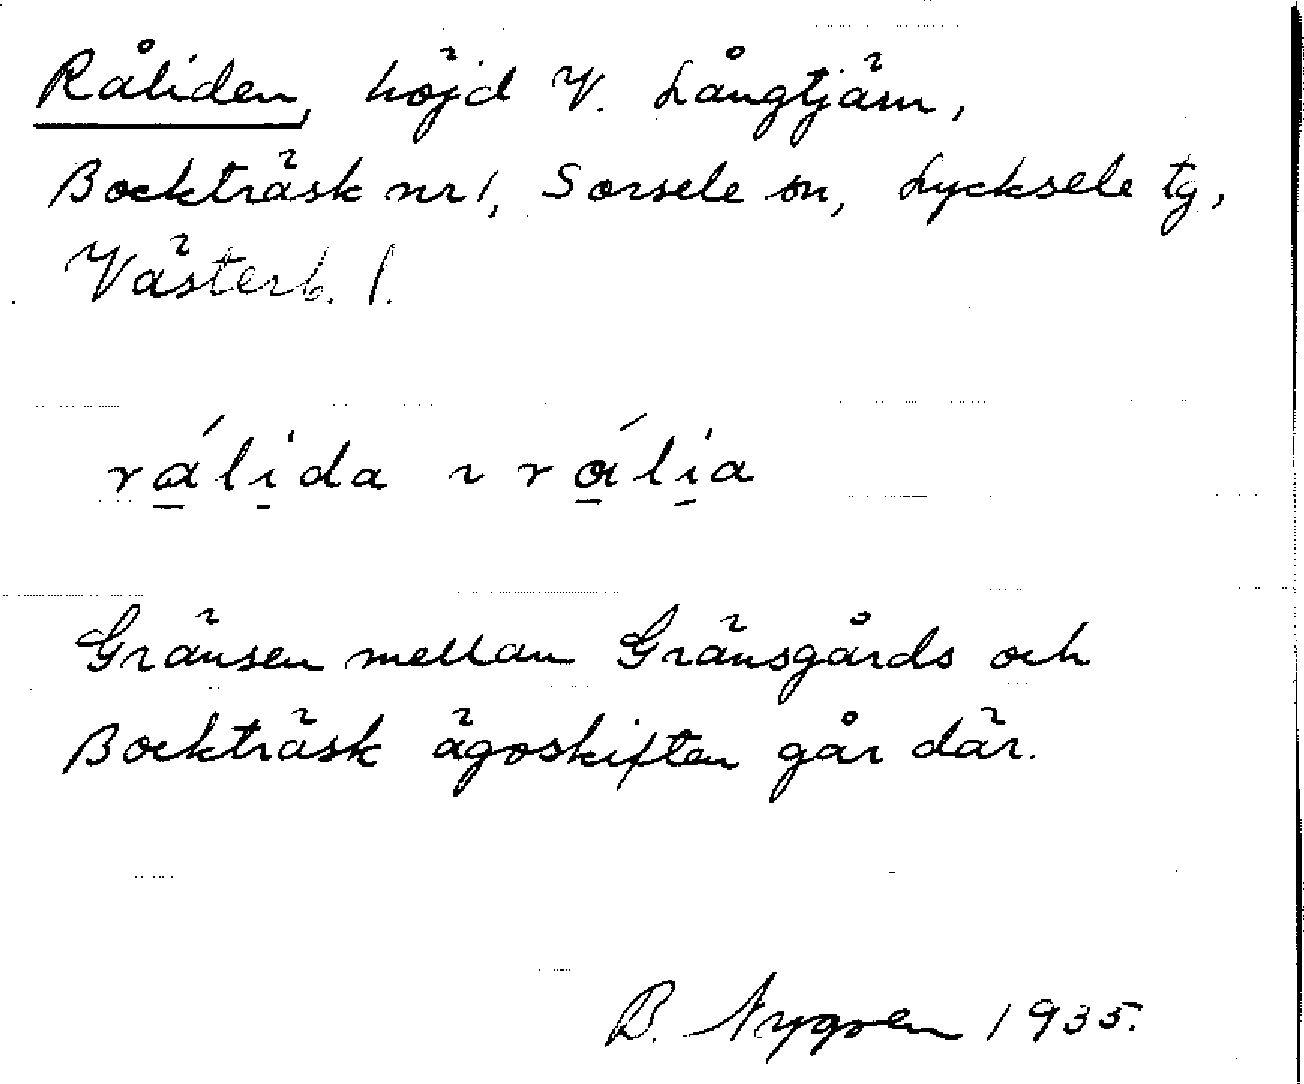 Råliden, höjd V. Långtjärn,
Bockträsk nr 1, Sorsele sn, Lycksele tg,
Västerb. l.
rá̱li̱da ~ rá̱li̱a
Gränsen mellan Gränsgårds och
Bockträsk ägoskiften går där.
B. Nygren 1935.